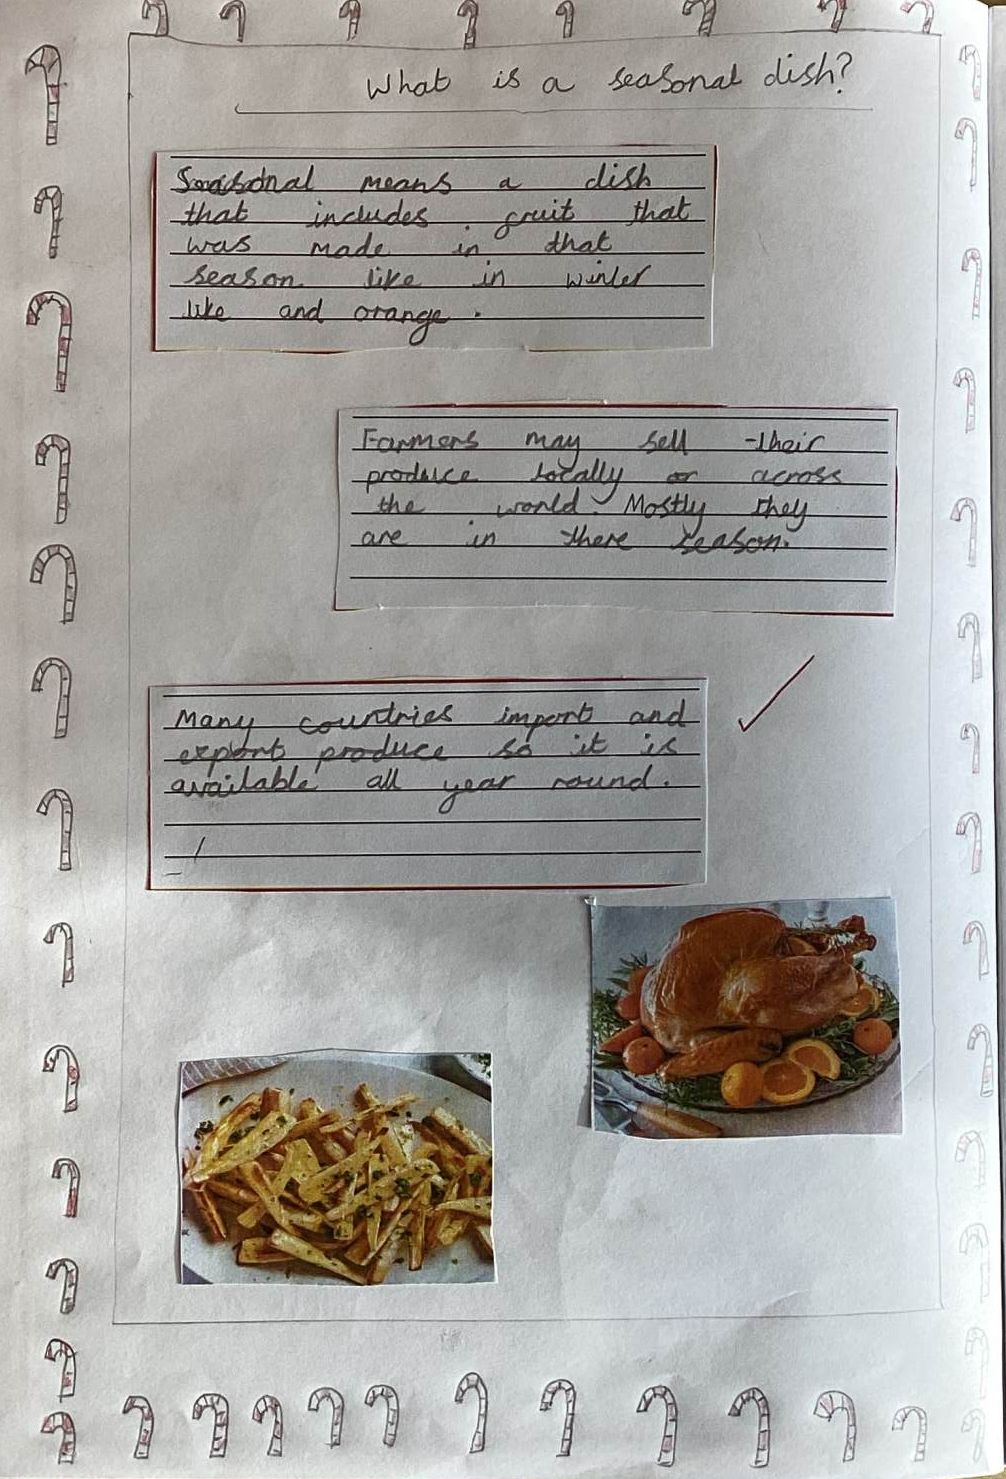 What is a seasonal dish?
Seasonal means a dish
that includes fruit that
was made in that
season like in winter
like and orange.
Farmers may sell their
produce locally or across
the world. Mostly they
are in there season.
Many countries import and
export produce so it is
available all year round.